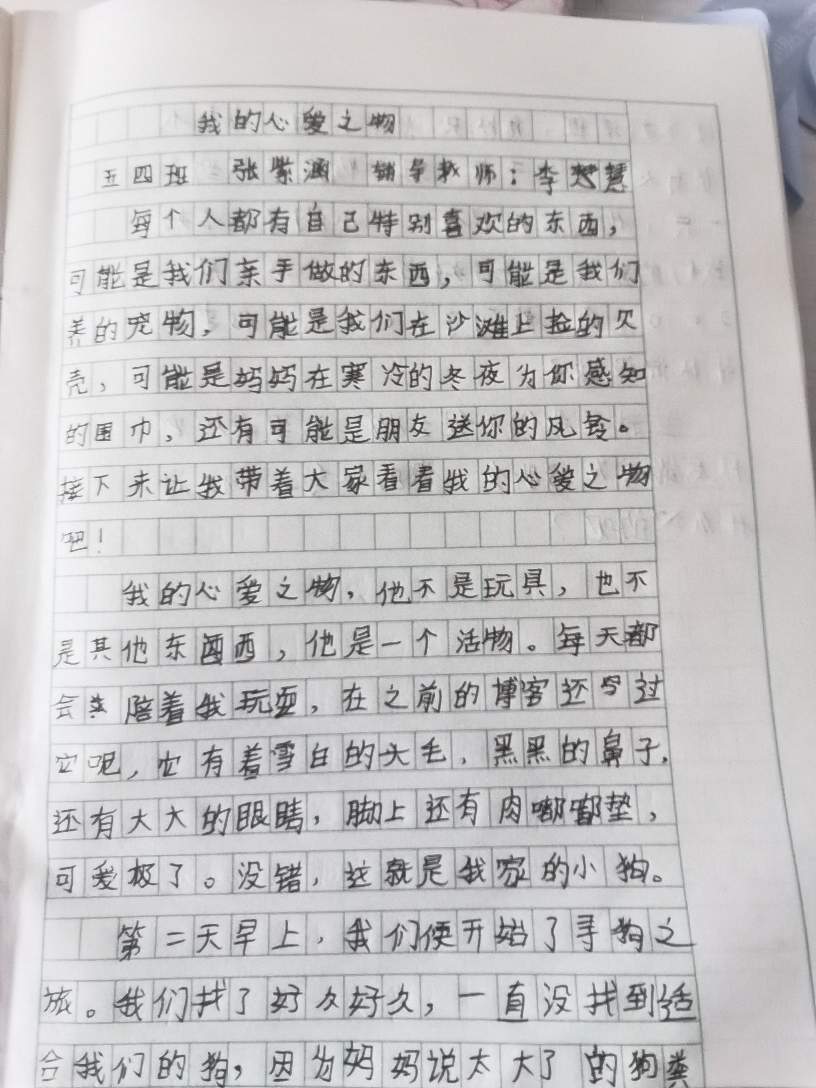 我的心爱之物
五四班 张紫涵 辅导教师:李慧慧
每个人都有自己特别喜欢的东西,
可能是我们亲手做的东西,可能是我们
养的宠物,可能是我们在沙滩上捡的欠
壳,可能是妈妈在寒冷的冬夜为你感知
的围巾,还有可能是朋友送你的风铃。
接下来让我带着大家看看我的心爱之物
吧!
我的心爱之物,他不是玩具,也不
是其他东西,他是一个活物。每天都
会来陪着我玩耍,在之前的博客还写过
它呢,它有着雪白的大毛,黑黑的鼻子,
还有大大的眼睛,脚上还有肉嘟嘟垫,
可爱极了。没错,这就是我家的小狗。
第二天早上,我们便开始了寻狗之
旅。我们找了好久好久,一直没找到适
合我们的狗,因为妈妈说太大了的狗粪